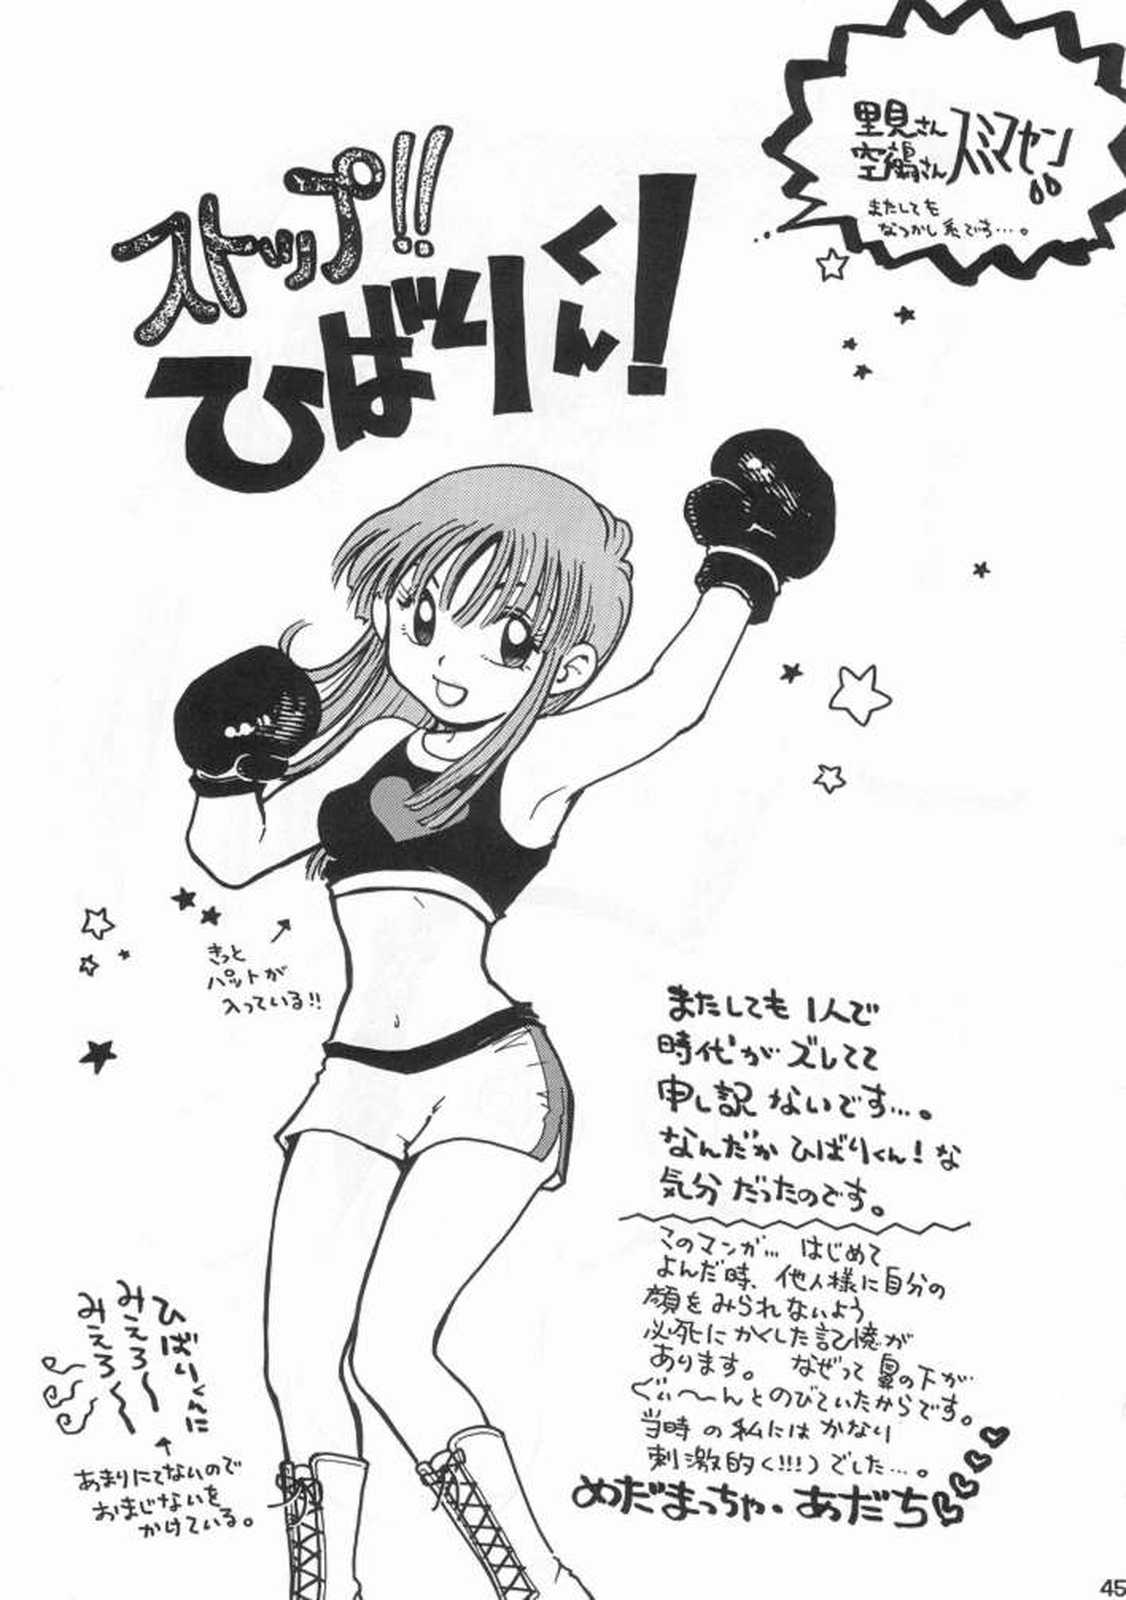 里見さん
空鵺さん
スミマセン
またしても
なつかし系です…。
ストップ!!
ひばりくん!
きっと
パットが
入っている!!
またしても1人で
時代がズレてて
申し訳ないです…。
なんだかひばりくん!な
気分だったのです。
このマンガ…はじめて
よんだ時、他人様に自分の
顔をみられないよう
必死にかくした記憶が
あります。 なぜって鼻の下が
ぐぃ〜〜んとのびていたからです。
当時の私にはかなり
刺激的(!!!)でした…。
めだまっちゃ・あだち
ひばりくんに
みえろ〜〜
みえろ〜〜
あまりにてないので
おまじないを
かけている。
45